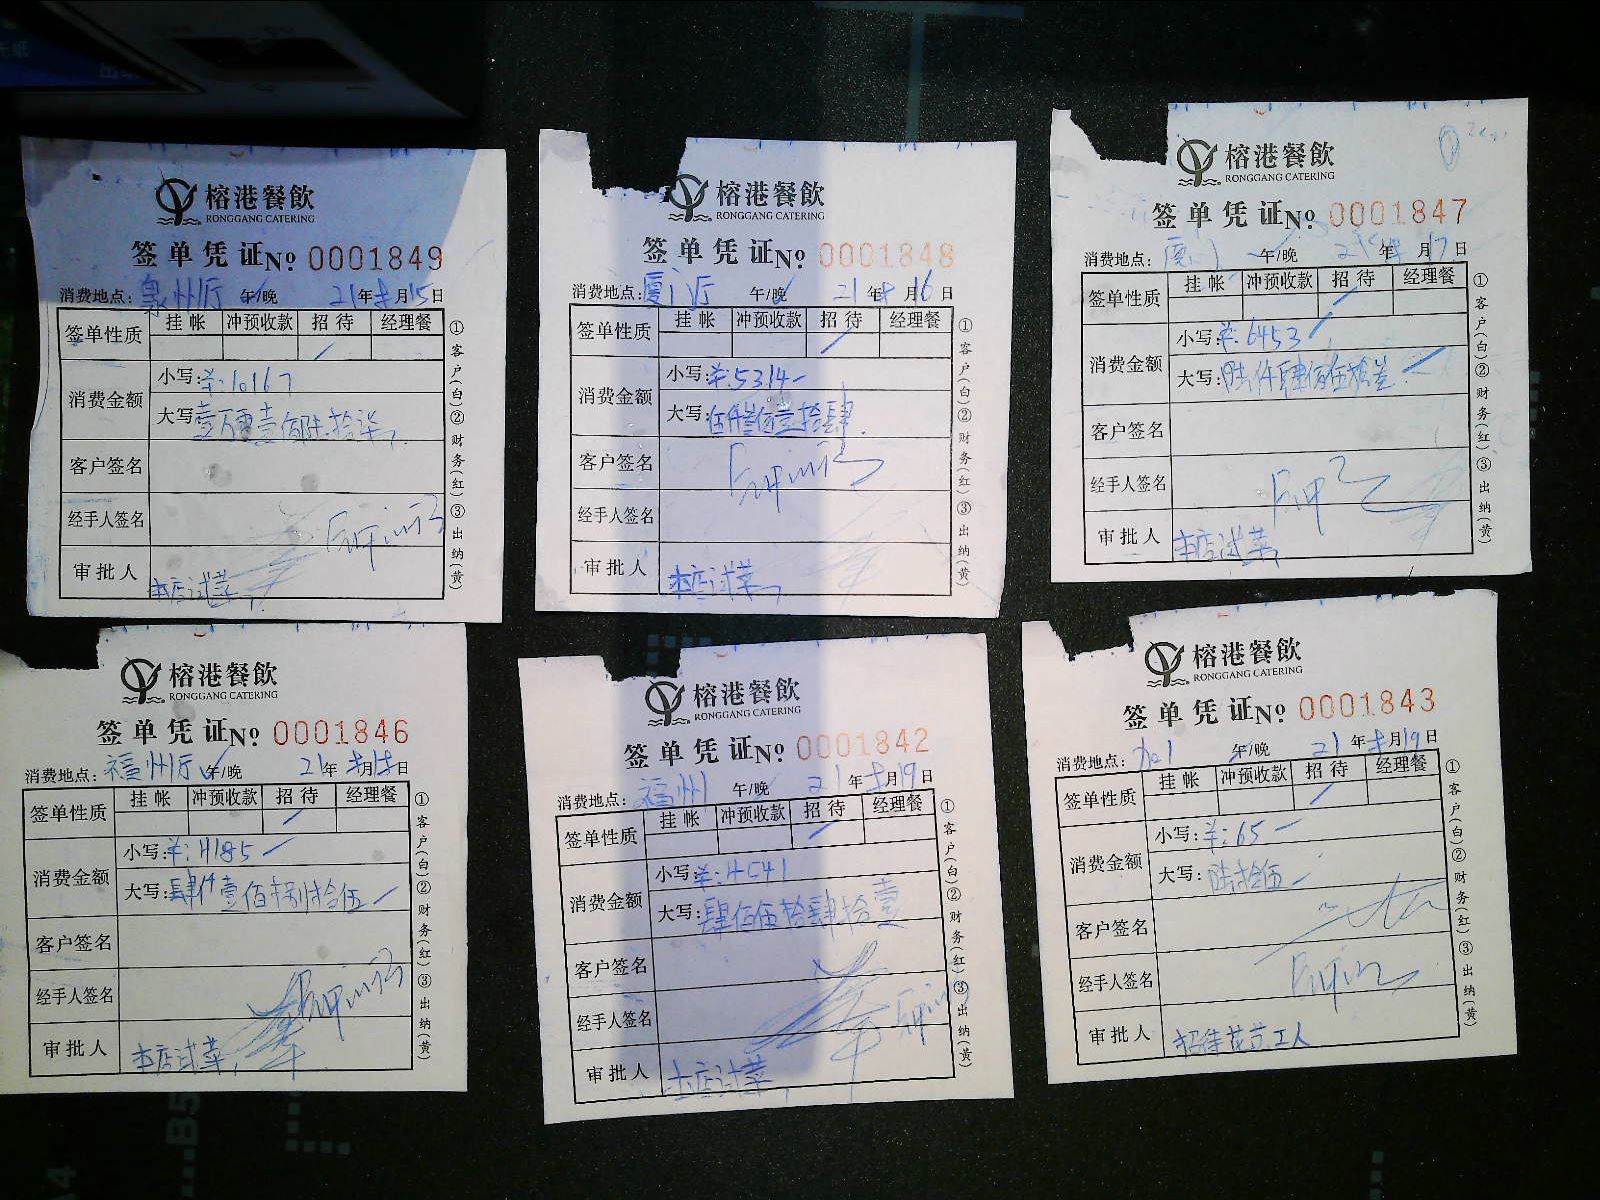 榕港餐飲
RONGGANG CATERING
签单凭证No 0001849
消费地点:泉州厅 午/晚 21年 月15日
签单性质 挂帐 冲预收款 招待 经理餐
消费金额
小写:羊:10167
大写:壹万零壹佰陆拾柒
客户签名
经手人签名
审批人 本店试菜
①客户(白)②财务(红)③出纳(黄)
榕港餐飲
RONGGANG CATERING
签单凭证No 0001848
消费地点:厦门厅 午/晚 21年 月16日
签单性质 挂帐 冲预收款 招待 经理餐
消费金额
小写:羊:5314
大写:伍仟叁佰壹拾肆
客户签名
经手人签名
审批人 本店试菜
①客户(白)②财务(红)③出纳(黄)
榕港餐飲
RONGGANG CATERING
签单凭证No 0001847
消费地点:厦门 午/晚 年 月17日
签单性质 挂帐 冲预收款 招待 经理餐
消费金额
小写:羊:6453
大写:陆仟肆佰伍拾叁
客户签名
经手人签名
审批人 本店试菜
①客户(白)②财务(红)③出纳(黄)
榕港餐飲
RONGGANG CATERING
签单凭证No 0001846
消费地点:福州厅 午/晚 21年 月 日
签单性质 挂帐 冲预收款 招待 经理餐
消费金额
小写:羊:4185
大写:肆仟壹佰捌拾伍
客户签名
经手人签名
审批人 本店试菜
①客户(白)②财务(红)③出纳(黄)
榕港餐飲
RONGGANG CATERING
签单凭证No 0001842
消费地点:福州 午/晚 21年 月19日
签单性质 挂帐 冲预收款 招待 经理餐
消费金额
小写:羊:4541
大写:肆佰伍拾肆拾壹
客户签名
经手人签名
审批人 本店试菜
①客户(白)②财务(红)③出纳(黄)
榕港餐飲
RONGGANG CATERING
签单凭证No 0001843
消费地点: 午/晚 21年 月19日
签单性质 挂帐 冲预收款 招待 经理餐
消费金额
小写:羊:65
大写:陆拾伍
客户签名
经手人签名
审批人 招待 工人
①客户(白)②财务(红)③出纳(黄)